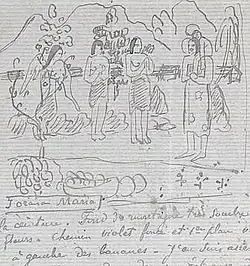 Iorana Maria
la ceinture. Fond de montagne très sombre
fleurs - Chemin violet foncé et 1er plan v
à gauche des bananes - J'en suis assez